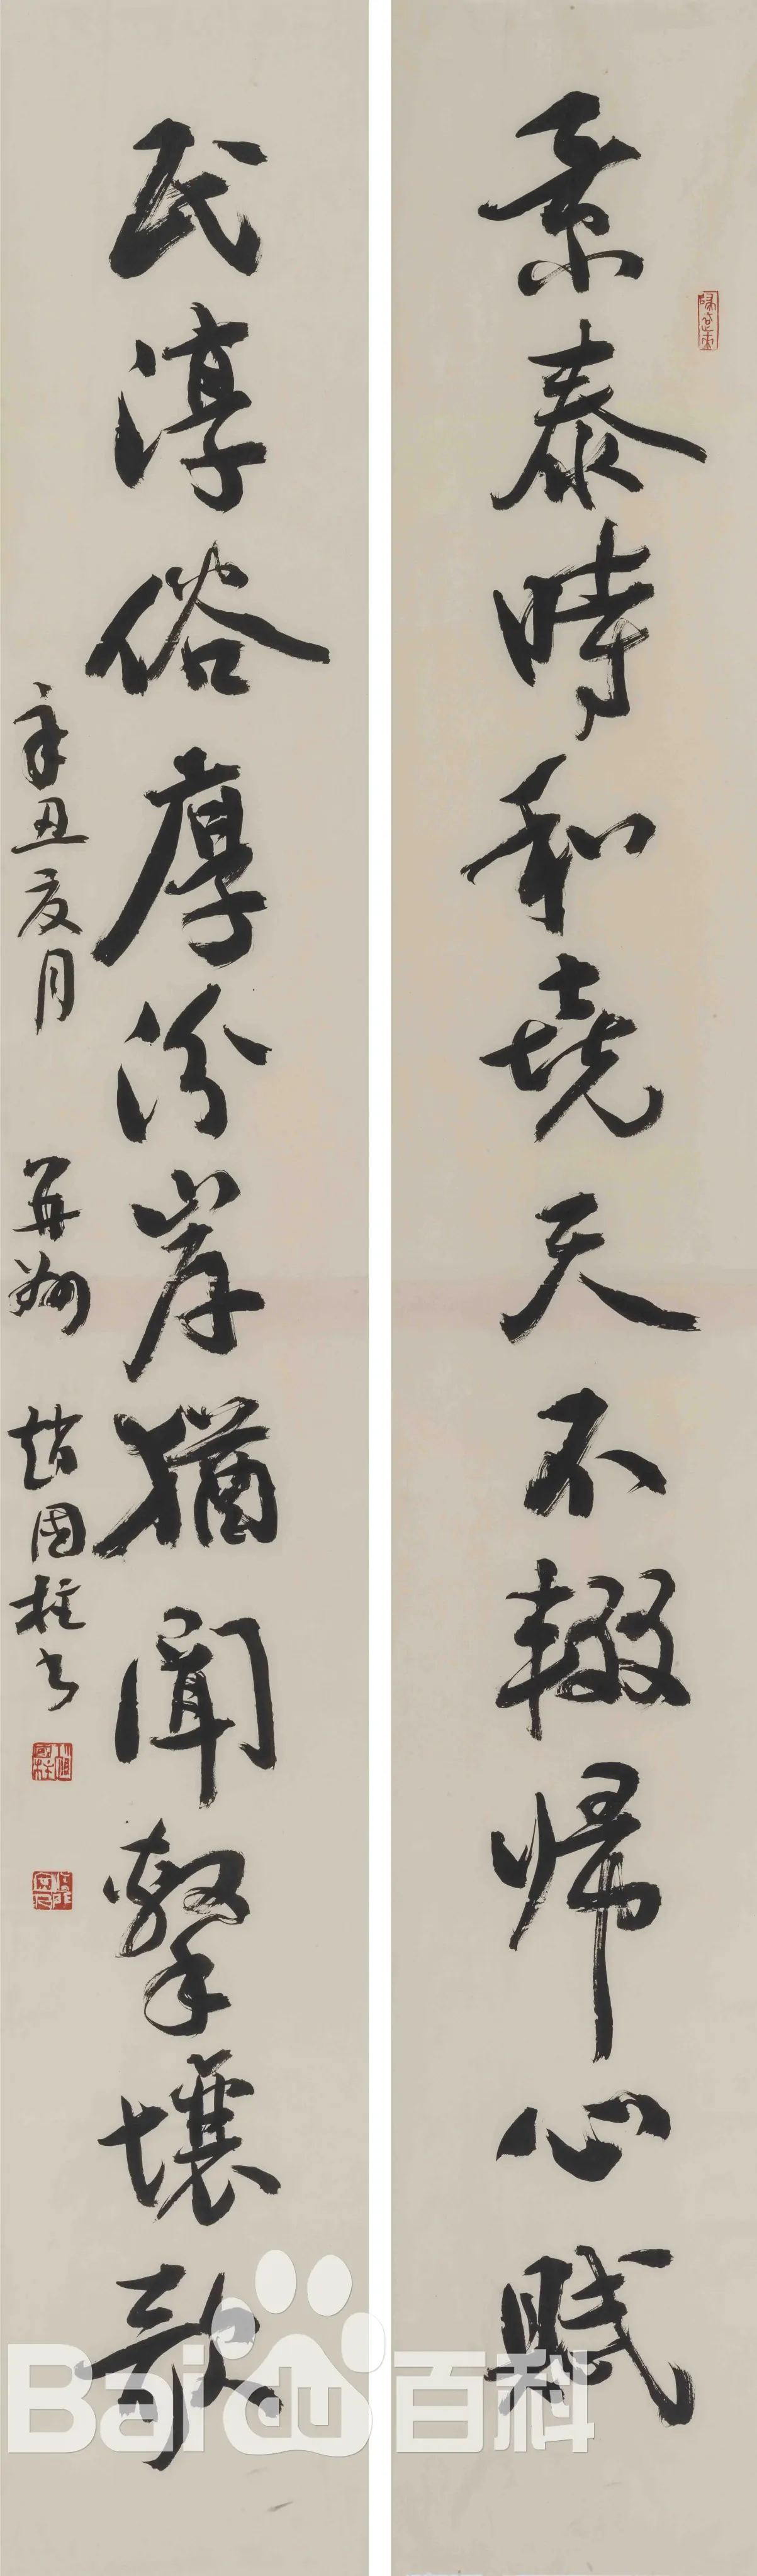 景泰時和堯天不輟歸心賦
民淳俗厚汾岸猶聞擊壤歌
辛丑夏月 并州 趙國柱書
Baidu百科